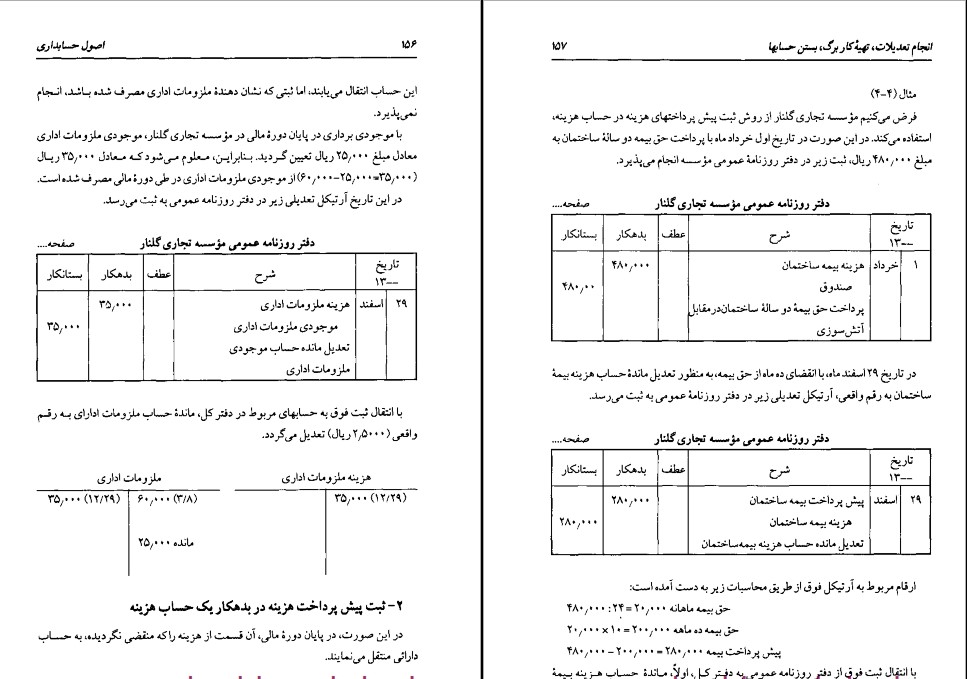 ۱۵۶ اصول حسابداری
این حساب انتقال می‌یابند، اما ثبتی که نشان دهندهٔ ملزومات اداری مصرف شده باشد، انجام
نمی‌پذیرد.
با موجودی برداری در پایان دورهٔ مالی در مؤسسه تجاری گلنار، موجودی ملزومات اداری
معادل مبلغ ۲۵٫۰۰۰ ریال تعیین گردید. بنابراین، معلوم می‌شود که معادل ۳۵٫۰۰۰ ریال
(۳۵٫۰۰۰=۲۵٫۰۰۰-۶۰٫۰۰۰) از موجودی ملزومات اداری در طی دورهٔ مالی مصرف شده است.
در این تاریخ آرتیکل تعدیلی زیر در دفتر روزنامه عمومی به ثبت می‌رسد.
دفتر روزنامه عمومی مؤسسه تجاری گلنار صفحه....
تاریخ ۱۳-- شرح عطف بدهکار بستانکار
۲۹ اسفند هزینه ملزومات اداری ۳۵٫۰۰۰
موجودی ملزومات اداری ۳۵٫۰۰۰
تعدیل مانده حساب موجودی
ملزومات اداری
با انتقال ثبت فوق به حسابهای مربوط در دفتر کل، ماندهٔ حساب ملزومات ادارای به رقم
واقعی (۲٫۵۰۰۰ ریال) تعدیل می‌گردد.
هزینه ملزومات اداری ملزومات اداری
(۱۲/۲۹) ۳۵٫۰۰۰ (۳/۸) ۶۰٫۰۰۰ (۱۲/۲۹) ۳۵٫۰۰۰
مانده ۲۵٫۰۰۰
۲- ثبت پیش پرداخت هزینه در بدهکار یک حساب هزینه
در این صورت، در پایان دورهٔ مالی، آن قسمت از هزینه را که منقضی نگردیده، به حساب
دارائی منتقل می‌نمایند.
انجام تعدیلات، تهیهٔ کار برگ، بستن حسابها ۱۵۷
مثال (۴-۴)
فرض می‌کنیم مؤسسه تجاری گلنار از روش ثبت پیش پرداختهای هزینه در حساب هزینه،
استفاده می‌کند. در این صورت در تاریخ اول خرداد ماه با پرداخت حق بیمه دو سالهٔ ساختمان به
مبلغ ۴۸۰٫۰۰۰ ریال، ثبت زیر در دفتر روزنامهٔ عمومی مؤسسه انجام می‌پذیرد.
دفتر روزنامه عمومی مؤسسه تجاری گلنار صفحه....
تاریخ ۱۳-- شرح عطف بدهکار بستانکار
۱ خرداد هزینه بیمه ساختمان ۴۸۰٫۰۰۰
صندوق ۴۸۰٫۰۰
پرداخت حق بیمهٔ دو سالهٔ ساختمان درمقابل
آتش‌سوزی
در تاریخ ۲۹ اسفند ماه، با انقضای ده ماه از حق بیمه، به منظور تعدیل ماندهٔ حساب هزینه بیمهٔ
ساختمان به رقم واقعی، آرتیکل تعدیلی زیر در دفتر روزنامهٔ عمومی به ثبت می‌رسد.
دفتر روزنامه عمومی مؤسسه تجاری گلنار صفحه....
تاریخ ۱۳-- شرح عطف بدهکار بستانکار
۲۹ اسفند پیش پرداخت بیمه ساختمان ۲۸۰٫۰۰۰
هزینه بیمه ساختمان ۲۸۰٫۰۰۰
تعدیل مانده حساب هزینه بیمه ساختمان
ارقام مربوط به آرتیکل فوق از طریق محاسبات زیر به دست آمده است:
حق بیمه ماهانه ۲۰٫۰۰۰ = ۲۴ : ۴۸۰٫۰۰۰
حق بیمه ده ماهه ۲۰۰٫۰۰۰ = ۱۰ × ۲۰٫۰۰۰
پیش پرداخت بیمه ۲۸۰٫۰۰۰ = ۲۰۰٫۰۰۰ - ۴۸۰٫۰۰۰
با انتقال ثبت فوق از دفتر روزنامه عمومی به دفتر کل، اولاً، ماندهٔ حساب هزینه بیمهٔ